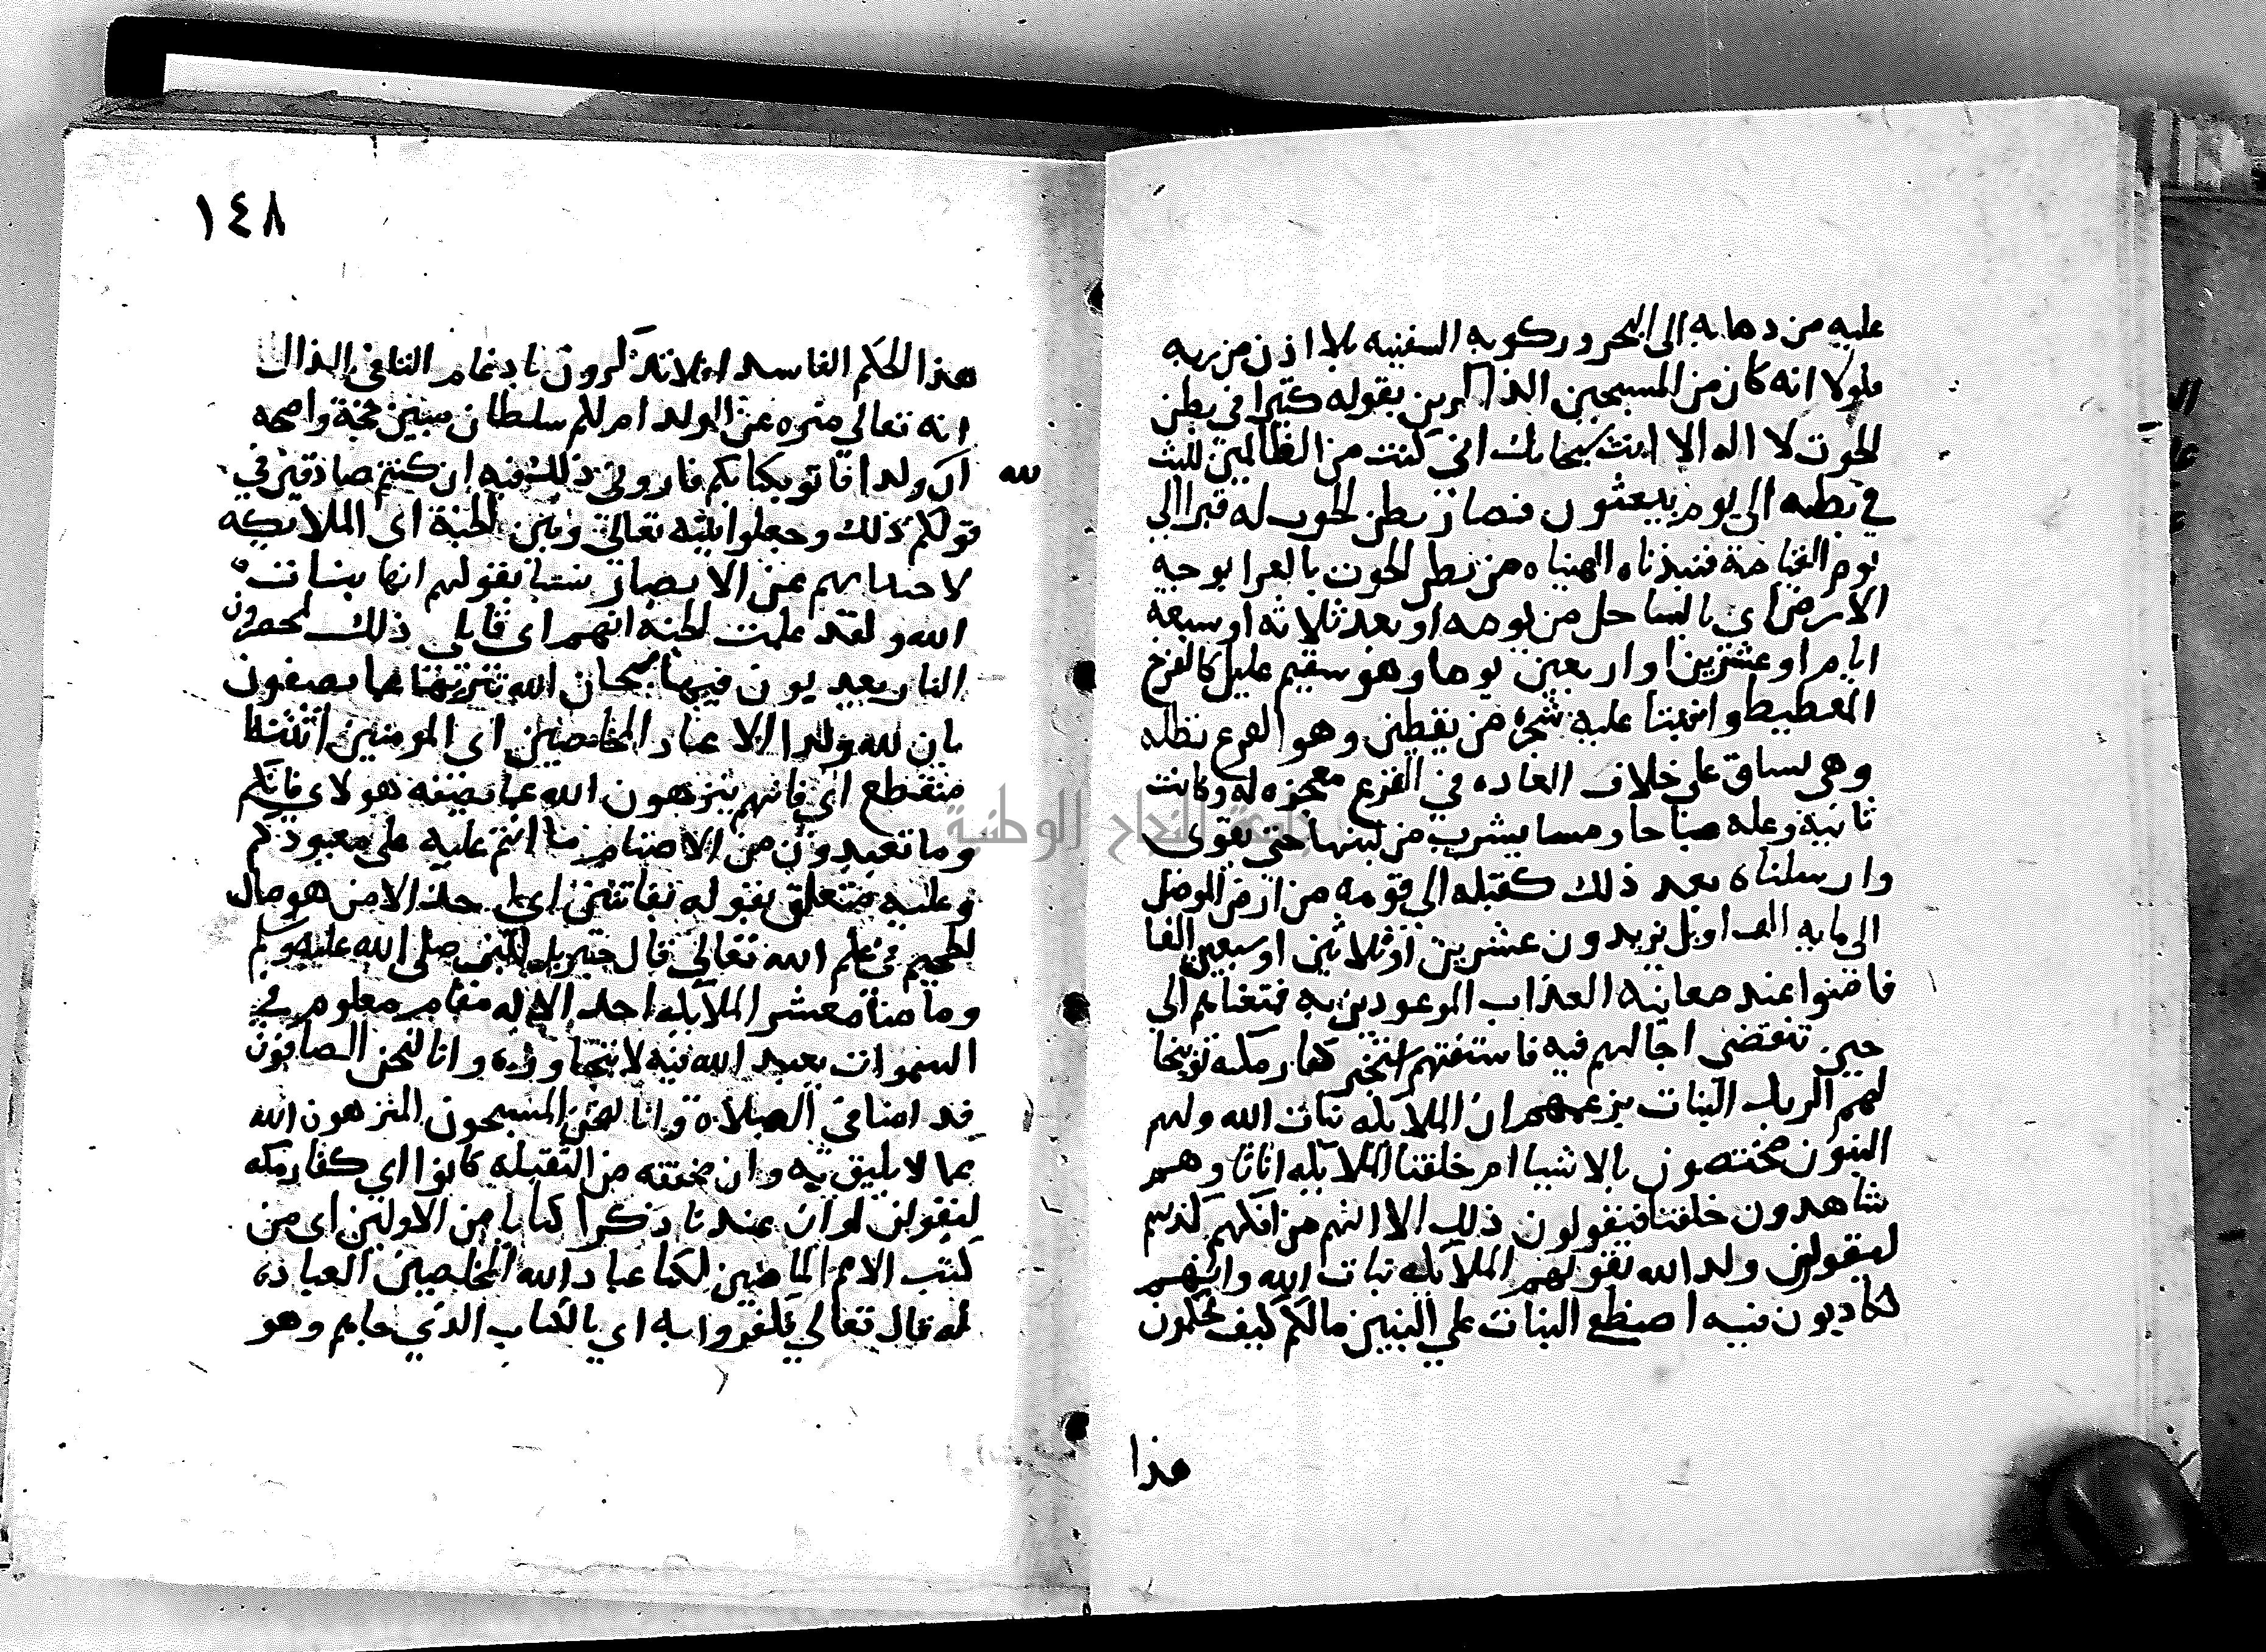 عليه من دهابه الى البحر وركوبه السفينه بلا اذن من ربه
فلولا انه كان من المسبحين الذاكرين بقوله كثيرا في بطن
الحوت لا اله الا انت سبحانك اني كنت من الظالمين للبث
في بطنه الى يوم يبعثون فصار بطن الحوت له قبرا الي
يوم القيامة فنبذناه القيناه من بطن الحوت بالعرا بوجه
الارض اي بالساحل من يومه او بعد ثلاثه او سبعة
ايام او عشرين او اربعين يوما وهو سقيم عليل كالفرخ
المعطيط وانبتنا عليه شجرة من يقطين وهو القرع تظله
وهي بساق على خلاف العاده في القرع معجزه له وكانت
تاتيه وعله صباحا ومسا يشرب من لبنها حتي يقوى
وارسلناه بعد ذلك كقبله الي قومه من ارض الموصل
الى مايه الف او بل يزيدون عشرين او ثلاثين او سبعين الفا
فامنوا عند معاينه العذاب الموعودين به فمتعناهم الى
حين تنقضى اجالهم فيه فاستفتهم استخبر كفار مكه توبيخا
لهم الربك البنات بزعمهم ان الملايكه بنات الله ولهم
البنون مختصون بالاشيا ام خلقنا الملايكه اناثا وهم
شاهدون خلقنا فيقولون ذلك الا انهم من افكهم كذبهم
ليقولون ولد الله بقولهم الملايكه بنات الله وانهم
لكاذبون فيه اصطفى البنات علي البنين مالكم كيف تحكمون
هذا
١٤٨
هذا الحكم الفاسد افلا تذكرون بادغام التا في الذال
انه تعالي منزه عن الولد ام لكم سلطان مبين حجة واضحه
ان لله ولدا فاتو بكتابكم فاروني ذلك فيه ان كنتم صادقين في
قولكم ذلك وجعلوا بينه تعالى وبين الجنة اى الملايكه
لاجتنابهم عن الابصار نسبا بقولهم انها بنات
الله ولقد علمت الجنه انهم اى قايلي ذلك لمحضرون
النار يعذبون فيها سبحان الله تنزيها عما يصفون
بان لله ولدا الا عباد الله المخلصين اى المومنين استثنا
منقطع اي فانهم ينزهون الله عما يصفه هولاي فانكم
وما تعبدون من الاصنام ما انتم عليه على معبودكم
وعليه متعلق بقوله بفاتنين اي احد الا من هو صال
الجحيم في علم الله تعالي قال جبريل للنبي صلى الله عليه وسلم
وما منا معشر الملايكه احد الا له مقام معلوم في
السموات يعبد الله فيه لا يتجاوزه وانا لنحن الصافون
قدامنا في الصلاة وانا لنحن المسبحون المنزهون الله
عما لا يليق به وان مخففه من الثقيله كانوا اي كفار مكه
ليقولن لو ان عندنا ذكرا كتابا من الاولين اى من
كتب الامم الماضين لكنا عباد الله المخلصين العباده
له قال تعالي فكفروا به اي بالكتاب الذي جاهم وهو
جامعة النجاح الوطنية